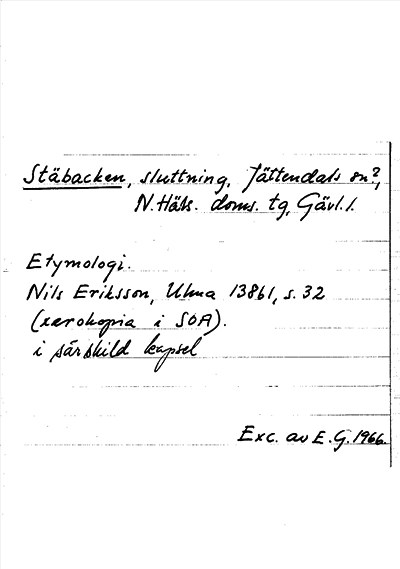 Stäbacken, sluttning, Jättendals sn?,
N. Häls. doms. tg, Gävl. l.
Etymologi.
Nils Eriksson, Ulma 13861, s. 32
(xerokopia i SOA).
i särskild kapsel
Exc. av E. G. 1966.